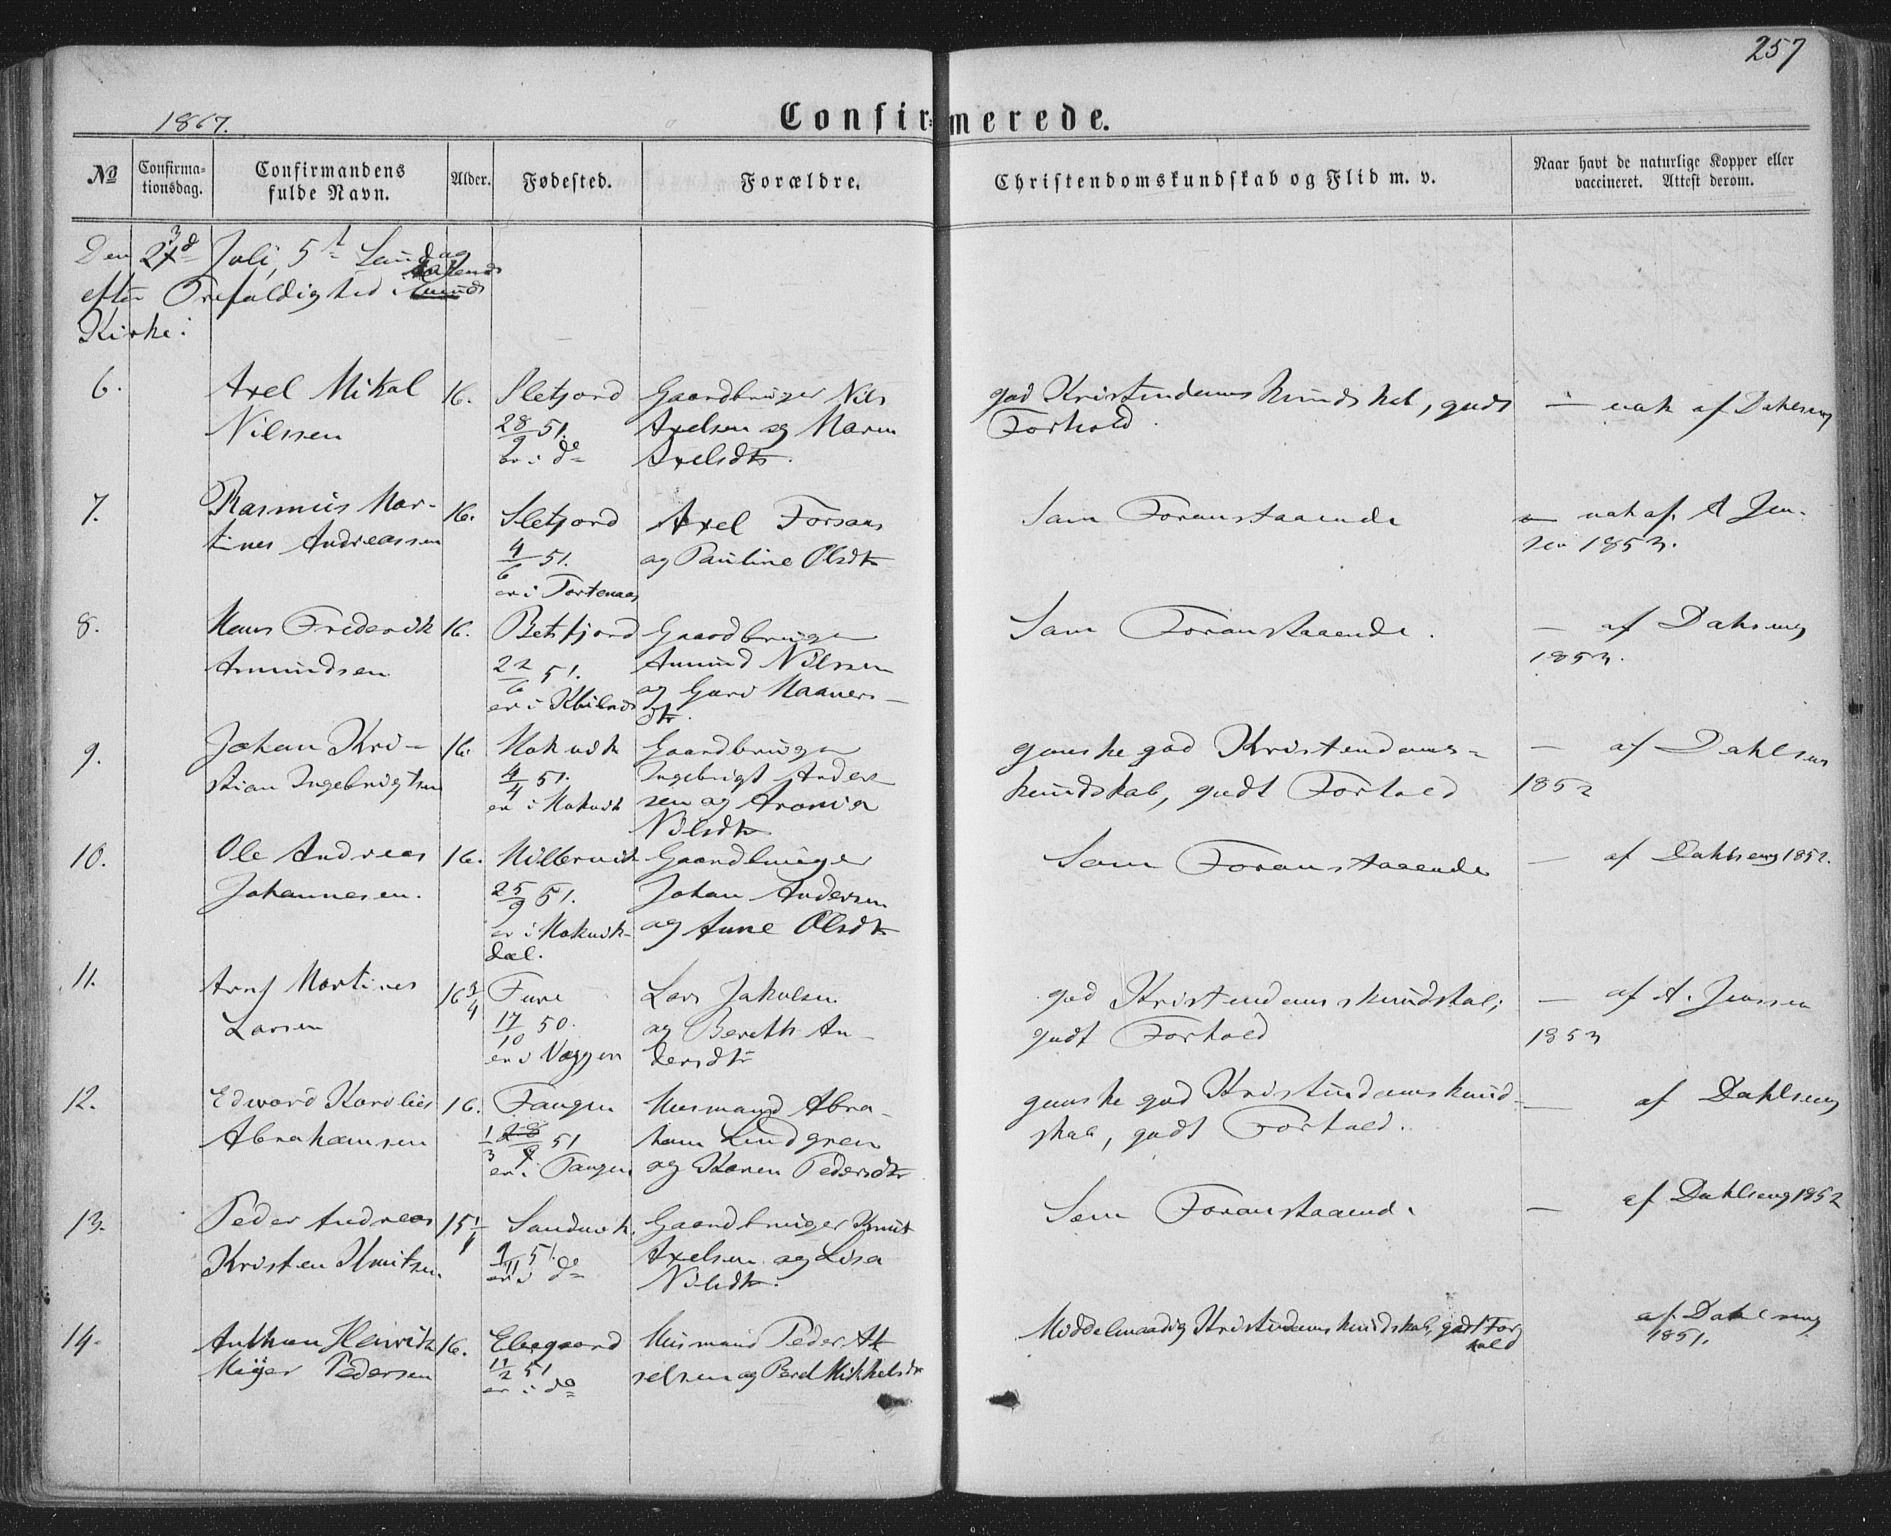 257
1867.
Confirmerede.
№
Confirma-
tionsdag.
Confirmandens
fulde Navn.
Alder.
Fødested.
Forældre.
Christendomskundskab og Flid m. v.
Naar havt de naturlige Kopper eller
vaccineret. Attest derom.
Den Juli, 5t Søndag
efter Trefoldighed i
Kirke:
6.
Axel Mikal
Nilssen
16.
Sletjord
28/9 51.
er i do
Gaardbruger Nils
Axelsen og Maren
Axelsdtr.
god Kristendomskundskab, godt
Forhold.
— vak af Dahlseng
7.
Rasmus Mar-
tines Andreassen
16.
Sletjord
4/6 51.
er i Tortenaas
Axel Forsaas
og Pauline Olsdtr
Som Foranstaaende
vak af. A Jen-
sen 1853.
8.
Hans Frederik
Amundsen
16.
Beisfjord
22/6 51.
er i
Gaardbruger
Amund Nilssen
og Guro Haavers-
dtr.
Som Foranstaaende.
— af Dahlseng
1853.
9.
Johan Kri-
stian Ingebrigtsen
16.
Mokvik
4/4 51.
er i Mokvik
Gaardbruger
Ingebrigt Ander-
sen og Aronia
Nilsdtr
ganske god Kristendoms-
kundskab, godt Forhold
— af Dahlseng
1852
10.
Ole Andreas
Johannesen.
16.
25/9 51.
er i Mokvik-
dal.
Gaardbruger
Johan Andersen
og Anne Olsdtr
Som Foranstaaende
— af Dahlseng 1852.
11.
Arnt Martines
Larsen
16 3/4
Fure
17/10 50.
er i Væggen
Lars Jakobsen
og Bereth An-
dersdtr
god Kristendomskundskab;
godt Forhold
— af A. Jenssen
1853
12.
Edvard Karolius
Abrahamsen
16.
Tangen
1/3 28/9 51
er i Tangen
Husmand Abra-
ham Lindgren
og Karen Pedersdtr
ganske god Kristendomskund-
skab, godt Forhold.
— af Dahlseng
13.
Peder Andreas
Kristen Knutsen.
15
Sandvik.
9/11 51.
er i do
Gaardbruger Knut
Axelsen og Lisa
Nilsdtr.
Som Foranstaaende
— af Dahlseng 1852
14.
Anthon Henrik
Meijer Pedersen
16.
Elvegaard
11/2 51
er i do
Husmand Peder Ak-
selsen og Berel Mikkelsdtr
Middelmaadig Kristendomskundskab, godt For-
hold
af Dahlseng
1851.